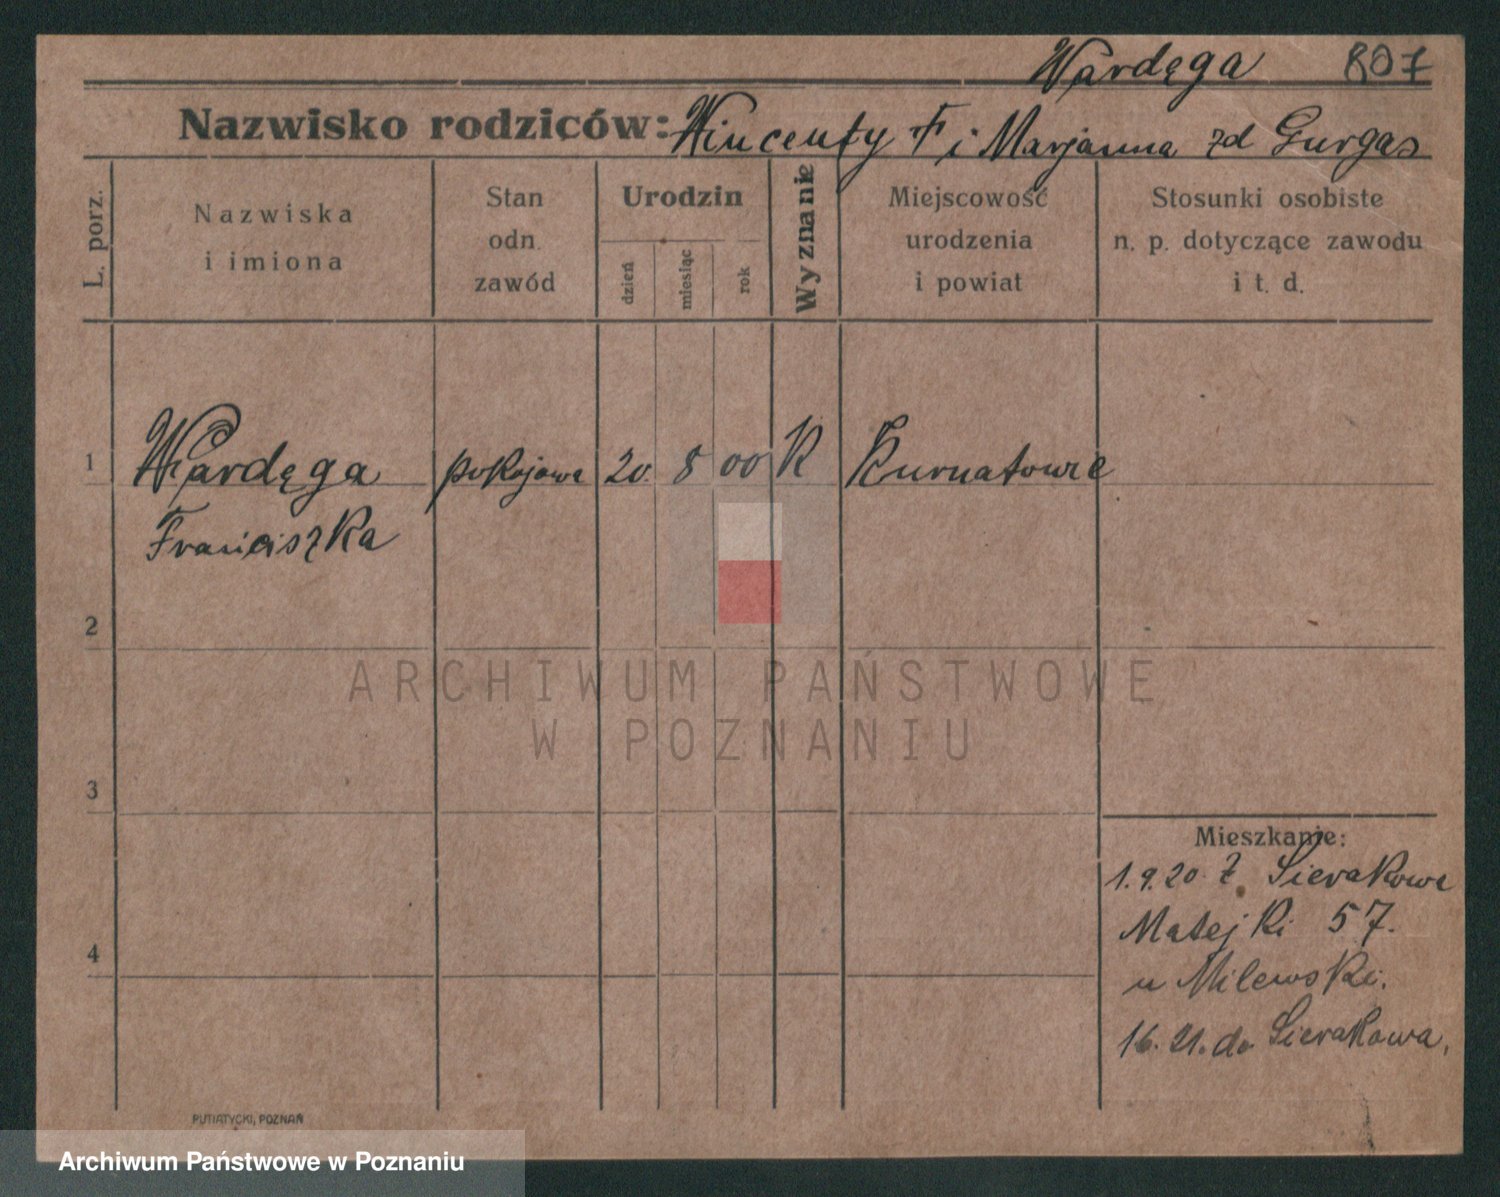 Wardęga 807
Nazwisko rodziców: Wincenty F i Marjanna zd Gurgas
L. porz.
Nazwiska
i imiona
Stan
odn.
zawód
Urodzin
dzień
miesiąc
rok
Wyznanie
Miejscowość
urodzenia
i powiat
Stosunki osobiste
n. p. dotyczące zawodu
i t. d.
1 Wardęga pokojowa 20. 8 00 K Kurnatowice
Franciszka
2
3
4
Mieszkanie:
1.9.20 z Sierakowa
Matejki 57.
u Milewski.
16. 21. do Sierakowa.
ARCHIWUM PAŃSTWOWE
W POZNANIU
PUTIATYCKI, POZNAŃ
Archiwum Państwowe w Poznaniu